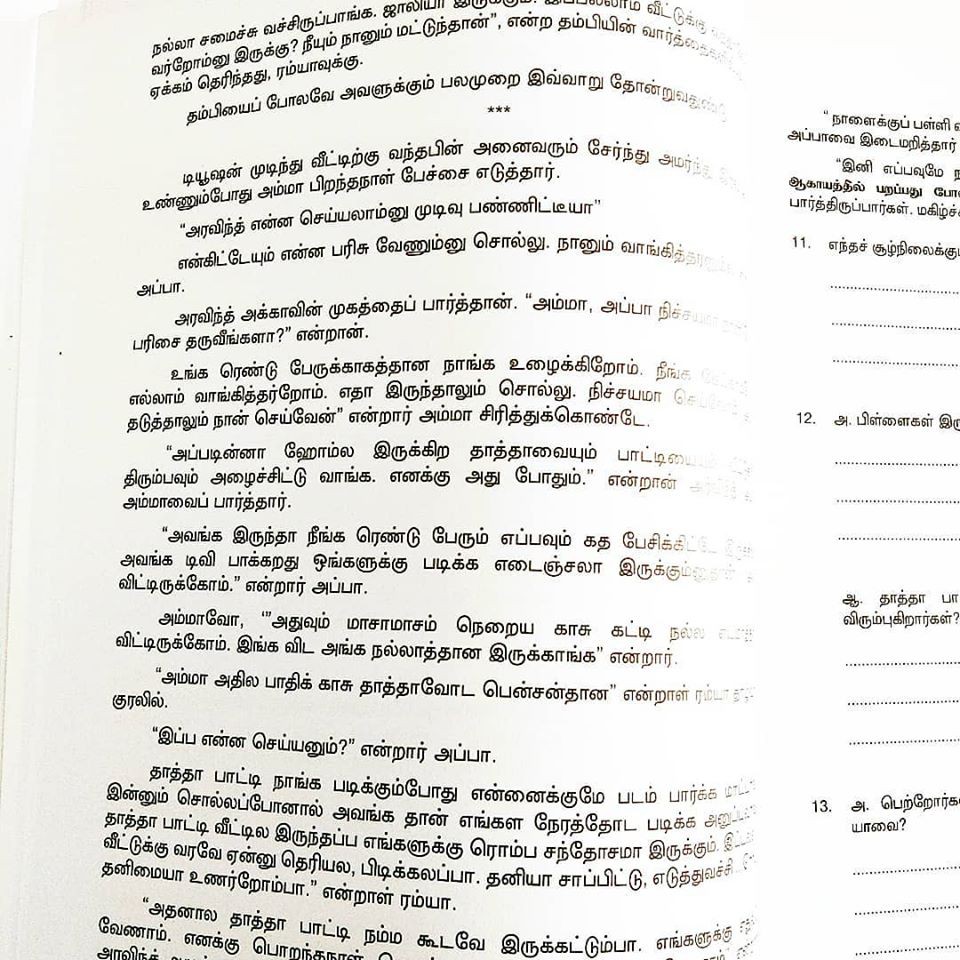 நல்லா சமைச்சு வச்சிருப்பாங்க. ஜாலியா இருக்கும். இப்பல்லாம் வீட்டுக்கு
வர்றோம்னு இருக்கு? நீயும் நானும் மட்டுந்தான்”, என்ற தம்பியின்
ஏக்கம் தெரிந்தது, ரம்யாவுக்கு.
தம்பியைப் போலவே அவளுக்கும் பலமுறை இவ்வாறு
***
டியூஷன் முடிந்து வீட்டிற்கு வந்தபின் அனைவரும் சேர்ந்து
உண்ணும்போது அம்மா பிறந்தநாள் பேச்சை எடுத்தார்.
“அரவிந்த் என்ன செய்யலாம்னு முடிவு பண்ணிட்டீயா”
என்கிட்டேயும் என்ன பரிசு வேணும்னு சொல்லு. நானும்
அப்பா.
அரவிந்த் அக்காவின் முகத்தைப் பார்த்தான். “அம்மா, அப்பா
பரிசை தருவீங்களா?” என்றான்.
உங்க ரெண்டு பேருக்காகத்தான நாங்க உழைக்கிறோம். நீங்க
எல்லாம் வாங்கித்தர்றோம். எதா இருந்தாலும் சொல்லு. நிச்சயமா
தடுத்தாலும் நான் செய்வேன்” என்றார் அம்மா சிரித்துக்கொண்டே.
“அப்படின்னா ஹோம்ல இருக்கிற தாத்தாவையும்
திரும்பவும் அழைச்சிட்டு வாங்க. எனக்கு அது போதும்.” என்றான்
அம்மாவைப் பார்த்தார்.
“அவங்க இருந்தா நீங்க ரெண்டு பேரும் எப்பவும் கத
அவங்க டிவி பாக்கறது ஒங்களுக்கு படிக்க எடைஞ்சலா
விட்டிருக்கோம்.” என்றார் அப்பா.
அம்மாவோ, ‘”அதுவும் மாசாமாசம் நெறைய காசு கட்டி நல்ல
விட்டிருக்கோம். இங்க விட அங்க நல்லாத்தான இருக்காங்க” என்றார்.
“அம்மா அதில பாதிக் காசு தாத்தாவோட பென்சன்தான” என்றாள் ரம்யா
குரலில்.
“இப்ப என்ன செய்யனும்?” என்றார் அப்பா.
தாத்தா பாட்டி நாங்க படிக்கும்போது என்னைக்குமே படம் பார்க்க
இன்னும் சொல்லப்போனால் அவங்க தான் எங்கள நேரத்தோட படிக்க
தாத்தா பாட்டி வீட்டில இருந்தப்ப எங்களுக்கு ரொம்ப சந்தோசமா இருக்கும்.
வீட்டுக்கு வரவே ஏன்னு தெரியல, பிடிக்கலப்பா. தனியா சாப்பிட்டு,
தனிமையா உணர்றோம்பா.” என்றாள் ரம்யா.
“அதனால தாத்தா பாட்டி நம்ம கூடவே இருக்கட்டும்பா. எங்களுக்கு
வேணாம். எனக்கு பொறந்தநாள்
“ நாளைக்குப் பள்ளி
அப்பாவை இடைமறித்தார்
“இனி எப்பவுமே
ஆகாயத்தில் பறப்பது
பார்த்திருப்பார்கள்.
11. எந்தச்
12. அ. பிள்ளைகள்
ஆ. தாத்தா
விரும்புகிறார்கள்?
13. அ.
யாவை?